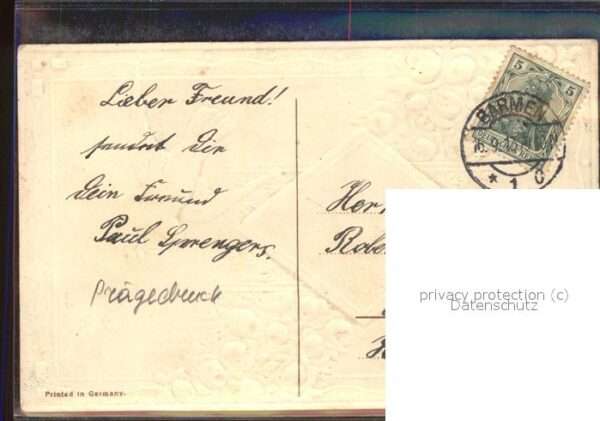 Lieber Freund!
sendet Dir
Dein Freund
Paul Sprengers.
Prägedruck
Printed in Germany.
5 5
BARMEN
* 1 c
Herr
Robe
privacy protection (c)
Datenschutz